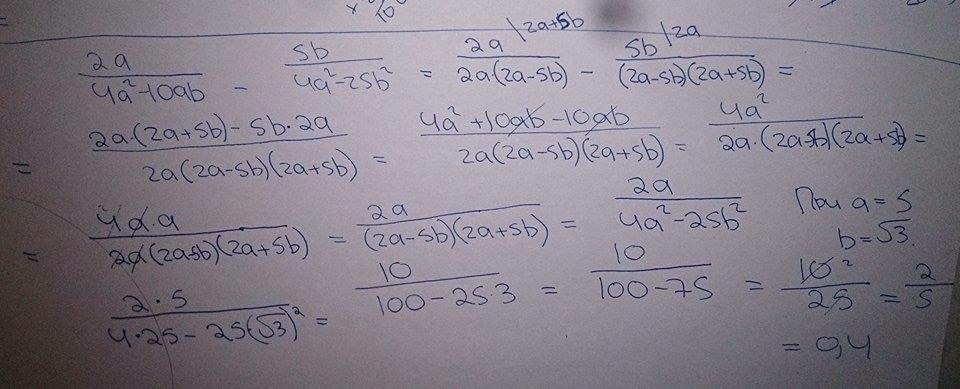 x /10
2a / (4a² - 10ab) - 5b / (4a² - 25b²) = 2a \ 2a+5b / 2a(2a-5b) - 5b \ 2a / (2a-5b)(2a+5b) =
= (2a(2a+5b) - 5b·2a) / 2a(2a-5b)(2a+5b) = (4a² + 10ab - 10ab) / 2a(2a-5b)(2a+5b) = 4a² / 2a·(2a-5b)(2a+5b) =
= 4a·a / 2a(2a-5b)(2a+5b) = 2a / (2a-5b)(2a+5b) = 2a / (4a² - 25b²) При a = 5
b = √3.
2·5 / (4·25 - 25(√3)²) = 10 / (100 - 25·3) = 10 / (100 - 75) = 10 ² / 25 = 2 / 5
= 0,4